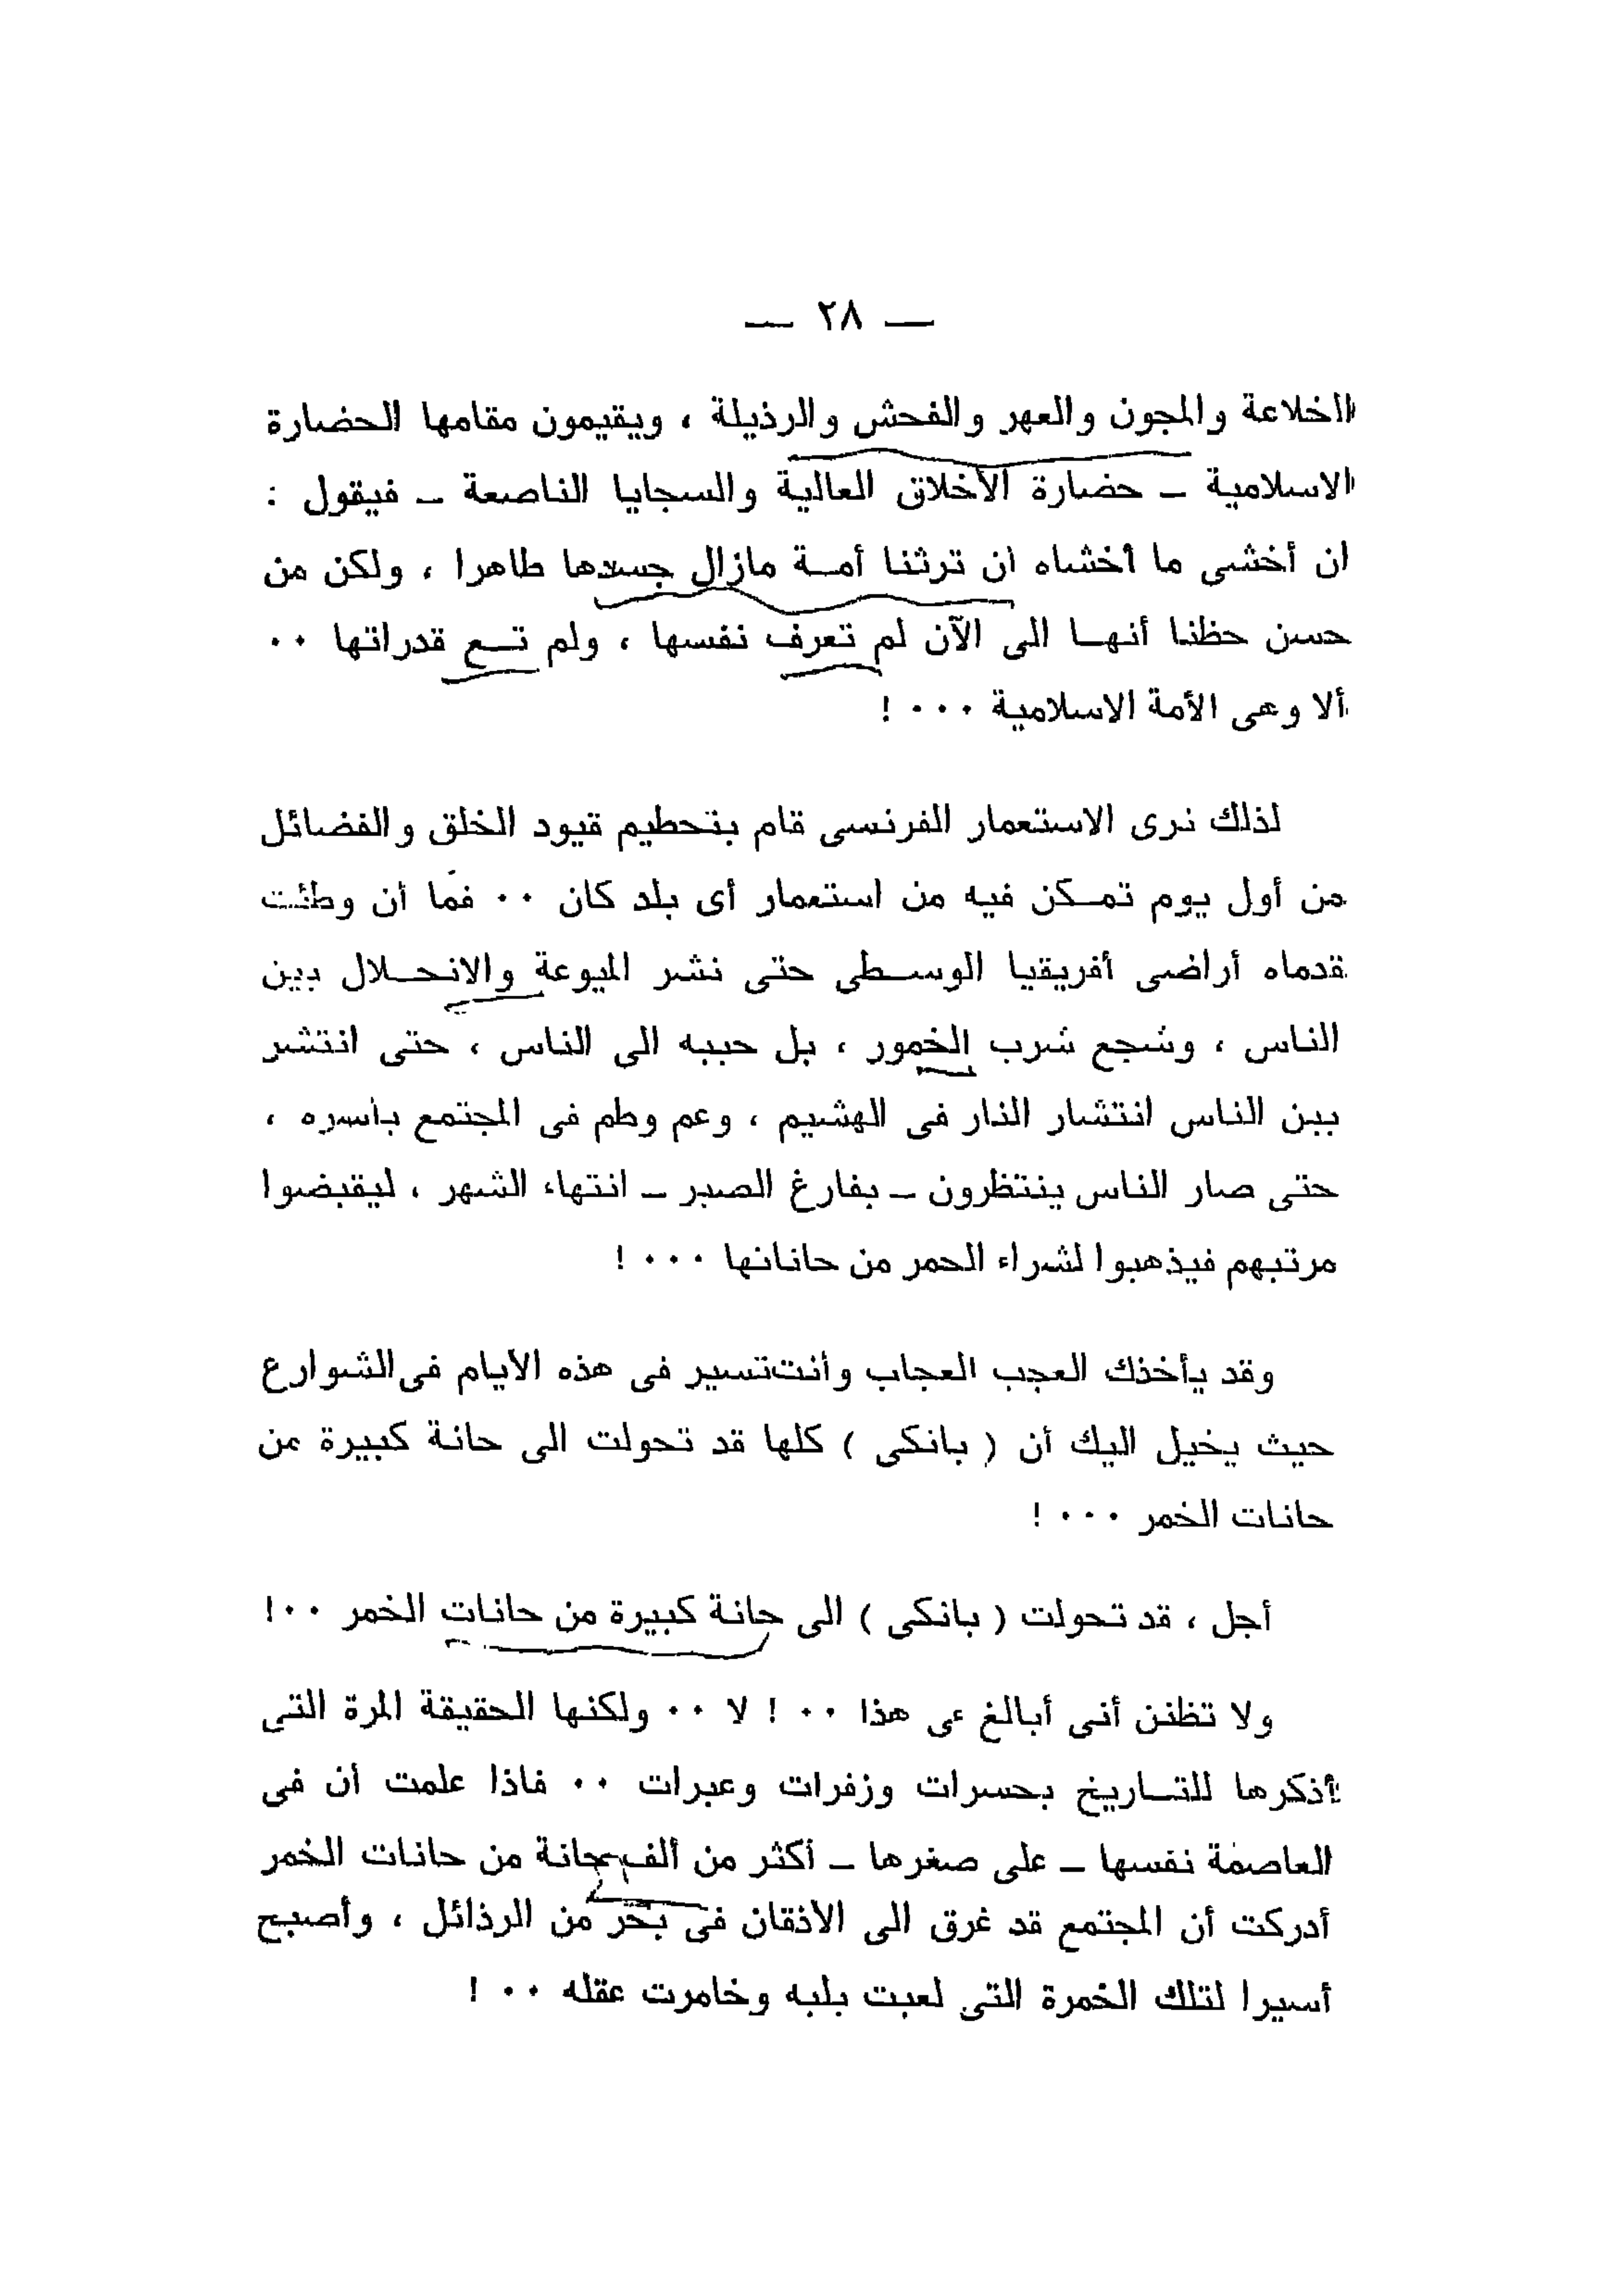 — ٢٨ —
الخلاعة والمجون والعهر والفحش والرذيلة ، ويقيمون مقامها الحضارة
الاسلامية — حضارة الأخلاق العالية والسجايا الناصعة — فيقول :
ان أخشى ما أخشاه ان ترثنا أمة مازال جسدها طاهرا ، ولكن من
حسن حظنا أنها الى الآن لم تعرف نفسها ، ولم تع قدراتها ٠٠
ألا وعى الأمة الاسلامية ٠٠٠ !
لذلك نرى الاستعمار الفرنسى قام بتحطيم قيود الخلق والفضائل
من أول يوم تمكن فيه من استعمار أى بلد كان ٠٠ فما أن وطئت
قدماه أراضى أفريقيا الوسطى حتى نشر الميوعة والانحلال بين
الناس ، وشجع شرب الخمور ، بل حببه الى الناس ، حتى انتشر
بين الناس انتشار النار فى الهشيم ، وعم وطم فى المجتمع بأسره ،
حتى صار الناس ينتظرون — بفارغ الصبر — انتهاء الشهر ، ليقبضوا
مرتبهم فيذهبوا لشراء الخمر من حاناتها ٠٠٠ !
وقد يأخذك العجب العجاب وأنت تسير فى هذه الأيام فى الشوارع
حيث يخيل اليك أن ( بانكى ) كلها قد تحولت الى حانة كبيرة من
حانات الخمر ٠٠٠ !
أجل ، قد تحولت ( بانكى ) الى حانة كبيرة من حانات الخمر ٠٠ !
ولا تظنن أنى أبالغ فى هذا ٠٠ ! لا ٠٠ ولكنها الحقيقة المرة التى
أذكرها للتاريخ بحسرات وزفرات وعبرات ٠٠ فاذا علمت أن فى
العاصمة نفسها — على صغرها — أكثر من ألف حانة من حانات الخمر
أدركت أن المجتمع قد غرق الى الأذقان فى بحر من الرذائل ، وأصبح
أسيرا لتلك الخمرة التى لعبت بلبه وخامرت عقله ٠٠ !